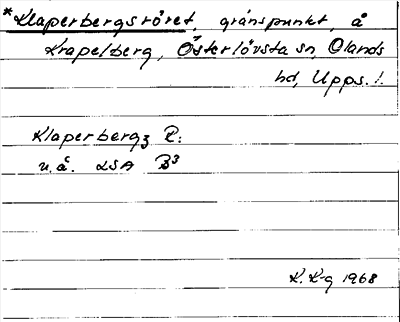 *Klaperbergsröret, gränspunkt, å
Krapelberg, Österlövsta sn, Olands
hd, Upps. l.
Klaperbergz R:
u.å. LSA B3
K. K-g 1968